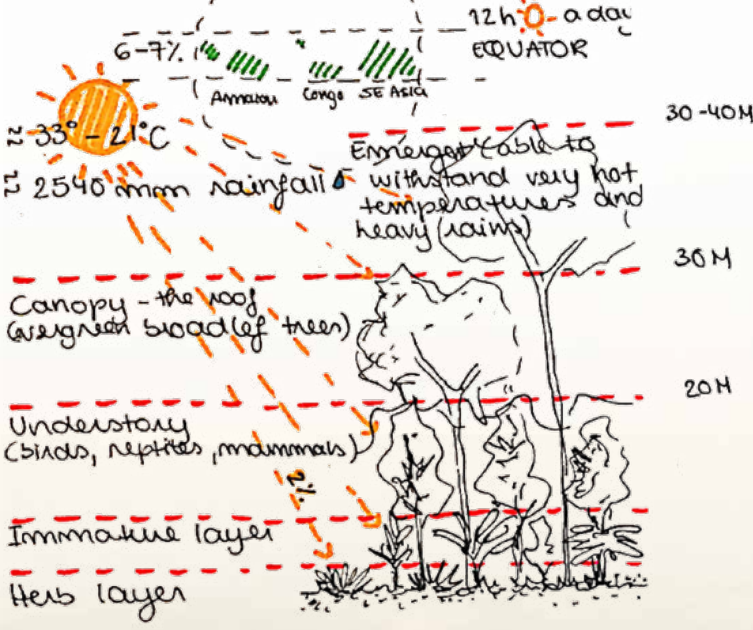 12h - a day
6-7% EQUATOR
Amazon Congo SE Asia
30-40M
≈ 33° - 21°C
Emergent (able to
≈ 2540 mm rainfall withstand very hot
temperatures and
heavy rains)
30M
Canopy - the roof
(evergreen broadlef trees)
20M
Understory
(birds, reptiles, mammals)
2%
Immature layer
Herb layer